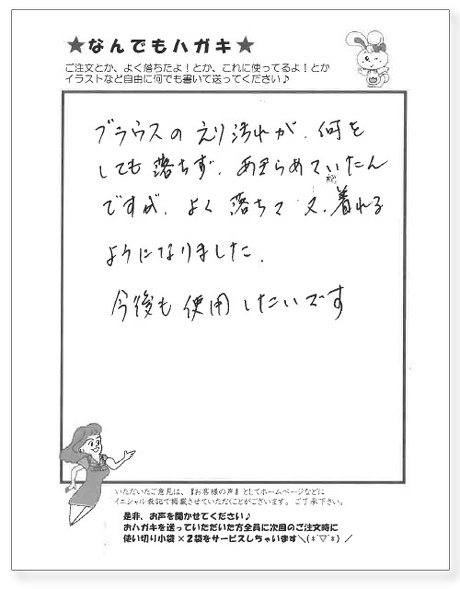 ★なんでもハガキ★
ご注文とか、よく落ちたよ!とか、これに使ってるよ!とか
イラストなど自由に何でも書いて送ってください♪
ブラウスの えり汚れが、何を
しても 落ちず、あきらめていたん
ですが、よく 落ちて 又、着れる
ようになりました。
今後も 使用 したいです
いただいたご意見は、『お客様の声』としてホームページなどに
イニシャル表記で掲載させていただくことがございます。ご了承下さい。
是非、お声を聞かせてください♪
おハガキを送っていただいた方全員に次回のご注文時に
使い切り小袋×2袋をサービスしちゃいます＼(*´▽`*)／